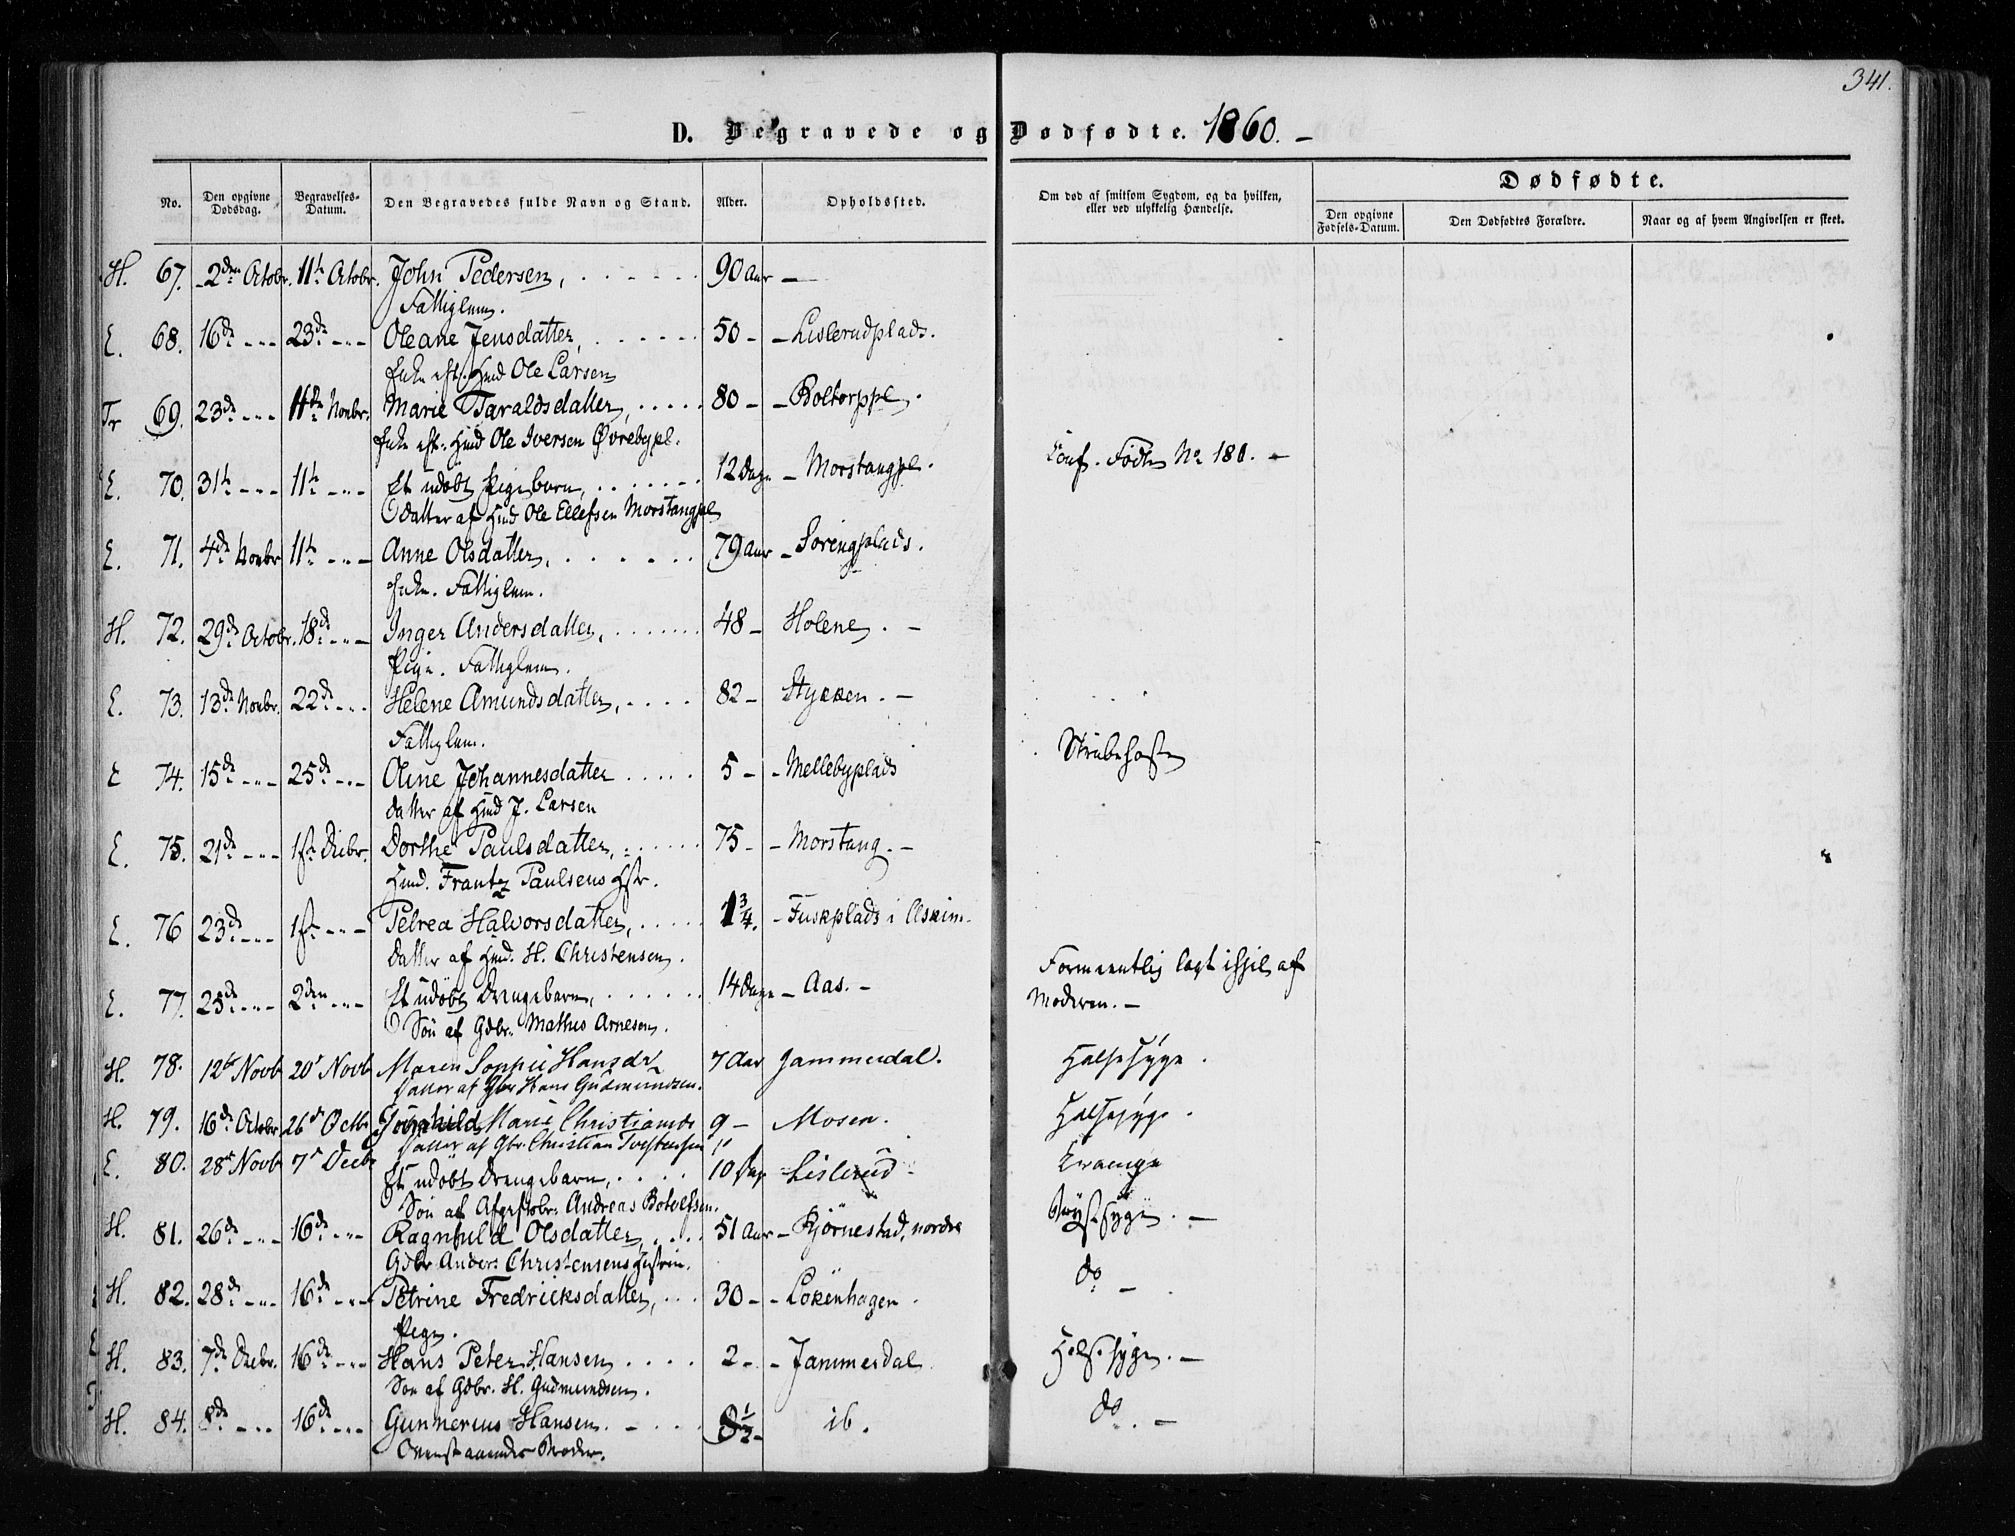 341.
D. Begravede og Dødfødte. 1860. —
No.
Den opgivne Dødsdag.
Begravelses-Datum.
Den Begravedes fulde Navn og Stand.
Alder.
Opholdssted.
Om død af smitsom Sygdom, og da hvilken, eller ved ulykkelig Hændelse.
Dødfødte.
Den opgivne Fødsels-Datum.
Den Dødfødtes Forældre.
Naar og af hvem Angivelsen er skeet.
H. 67. 2den Octobr. 11te Octobr. John Pedersen, 90 Aar —
Fattiglem.
E. 68. 16de -"- 23de -"- Oleane Jensdatter, 50 - - Lislerudplads.
Enke eft. Hmd Ole Larsen
Tr 69. 23de -"- 11te Novbr. Marie Taraldsdatter, 80 - - Boltorppl.
Enke eft. Hmd Ole Iversen Øvrebypl.
E. 70. 31te -"- 11te -"- Et udøbt Pigebarn, 12 Dage - Morstangpl. Conf. Fødte No 180. —
Datter af Hmd Ole Ellefsen Morstangpl
E. 71. 4de Novbr 11te -"- Anne Olsdatter, 79 Aar - Sorengplads.
Enke. Fattiglem.
H. 72. 29de Octobr. 18de -"- Inger Andersdatter, 48 - Holene. —
Pige. Fattiglem.
E. 73. 13de Novbr. 22de -"- Helene Amundsdatter, 82 - Stykken. —
Fattiglem.
E 74. 15de -"- 25de -"- Oline Johannesdatter 5 - - Mellebyplads Strubehoste
Datter af Hmd J. Larsen
E. 75. 21de -"- 1ste Decbr. Dorthe Paulsdatter, 75 - - Morstang. —
Hmd. Frantz Paulsens Hstr.
E. 76 23de -"- 1ste -"- Petrea Halvorsdatter, 1 3/4. - Fuskplads i Askim.
Datter af Hmd. H. Christensen.
E. 77. 25de -"- 2den -"- Et udøbt Drengebarn, 14 Dage - Aas. — Formeentlig lagt ihjel af Moderen. —
Søn af Gdbr. Mathis Arnesen.
H. 78. 12te Novb 20de Novb Maren Sophie Hansdr 7 Aar Jammerdal. Halsesyge.
Datter af Gbr Hans Gudmundsen.
H. 79. 16de Octobr 26de Octbr Gunhild Marie Christiansdr 9 - Mosen. Halsesyge.
Datter af Gbr. Christian Torstensen
E. 80. 28de Novb 7de Decbr Et udøbt Drengebarn, 10 Dage - Lislerud. Krampe
Søn af Andreas Botolfsen.
H. 81. 26de -"- 16de -"- Ragnhild Olsdatter, 51 Aar - Bjørnestad, nordre Brystsyge. —
Gdbr Anders Christensens Hustru.
H. 82. 28de -"- 16de -"- Petrine Fredricksdatter, 30 - - Løkenhagen. do —
Pige.
H. 83. 7de Decbr. 16de -"- Hans Peter Hansen 2 - - Jammerdal. Halsesyge. —
Søn af Gdbr. H. Gudmundsen.
H. 84. 8de -"- 16de -"- Gunnerius Hansen. 8 1/2 - ib. do. —
Ovenstaaendes Broder.